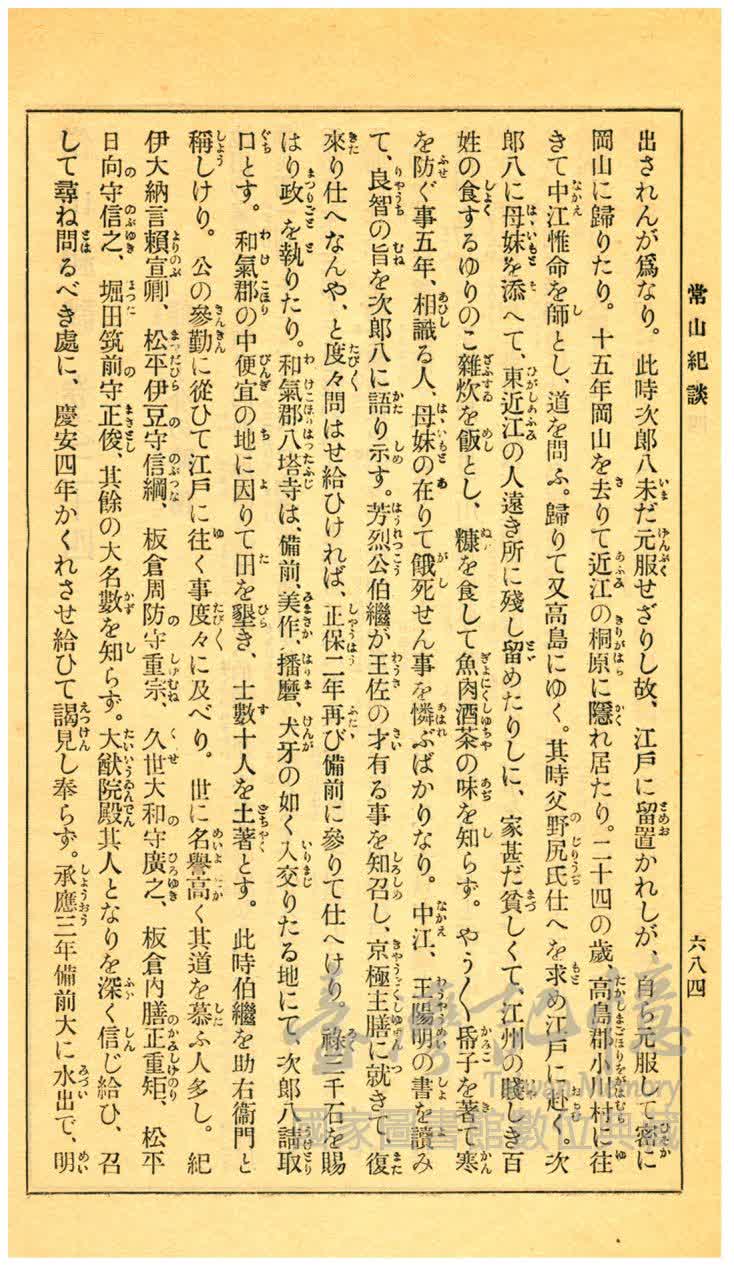 常山紀談
六八四
出されんが爲なり。此時次郎八未だ元服せざりし故、江戸に留置かれしが、自ら元服して密に
岡山に歸りたり。十五年岡山を去りて近江の桐原に隱れ居たり。二十四の歳高島郡小川村に往
きて中江惟命を師とし、道を問ふ。歸りて又高島にゆく。其時父野尻氏仕へを求め江戸に赴く。次
郎八に母妹を添へて、東近江の人遠き所に殘し留めたりしに、家甚だ貧しくて、江州の賤しき百
姓の食するゆりのこ雜炊を飯とし、糠を食して魚肉酒茶の味を知らず。やう〳〵帋子を著て寒
を防ぐ事五年、相識る人、母妹の在りて餓死せん事を憐ぶばかりなり。中江、王陽明の書を讀み
て、良智の旨を次郎八に語り示す。芳烈公伯繼が王佐の才有る事を知召し、京極主膳に就きて、復
來り仕へなんや、と度々問はせ給ひければ、正保二年再び備前に參りて仕へけり。祿三千石を賜
はり政を執りたり。和氣郡八塔寺は、備前、美作、播磨、犬牙の如く入交りたる地にて、次郎八請取
口とす。和氣郡の中便宜の地に因りて田を墾き、士數十人を土著とす。此時伯繼を助右衞門と
稱しけり。公の參勤に從ひて江戸に往く事度々に及べり。世に名譽高く其道を慕ふ人多し。紀
伊大納言賴宣卿、松平伊豆守信綱、板倉周防守重宗、久世大和守廣之、板倉內膳正重矩、松平
日向守信之、堀田筑前守正俊、其餘の大名數を知らず。大猷院殿其人となりを深く信じ給ひ、召
して尋ね問るべき處に、慶安四年かくれさせ給ひて謁見し奉らず。承應三年備前大に水出で、明
臺灣記憶
Taiwan Memory
國家圖書館數位典藏